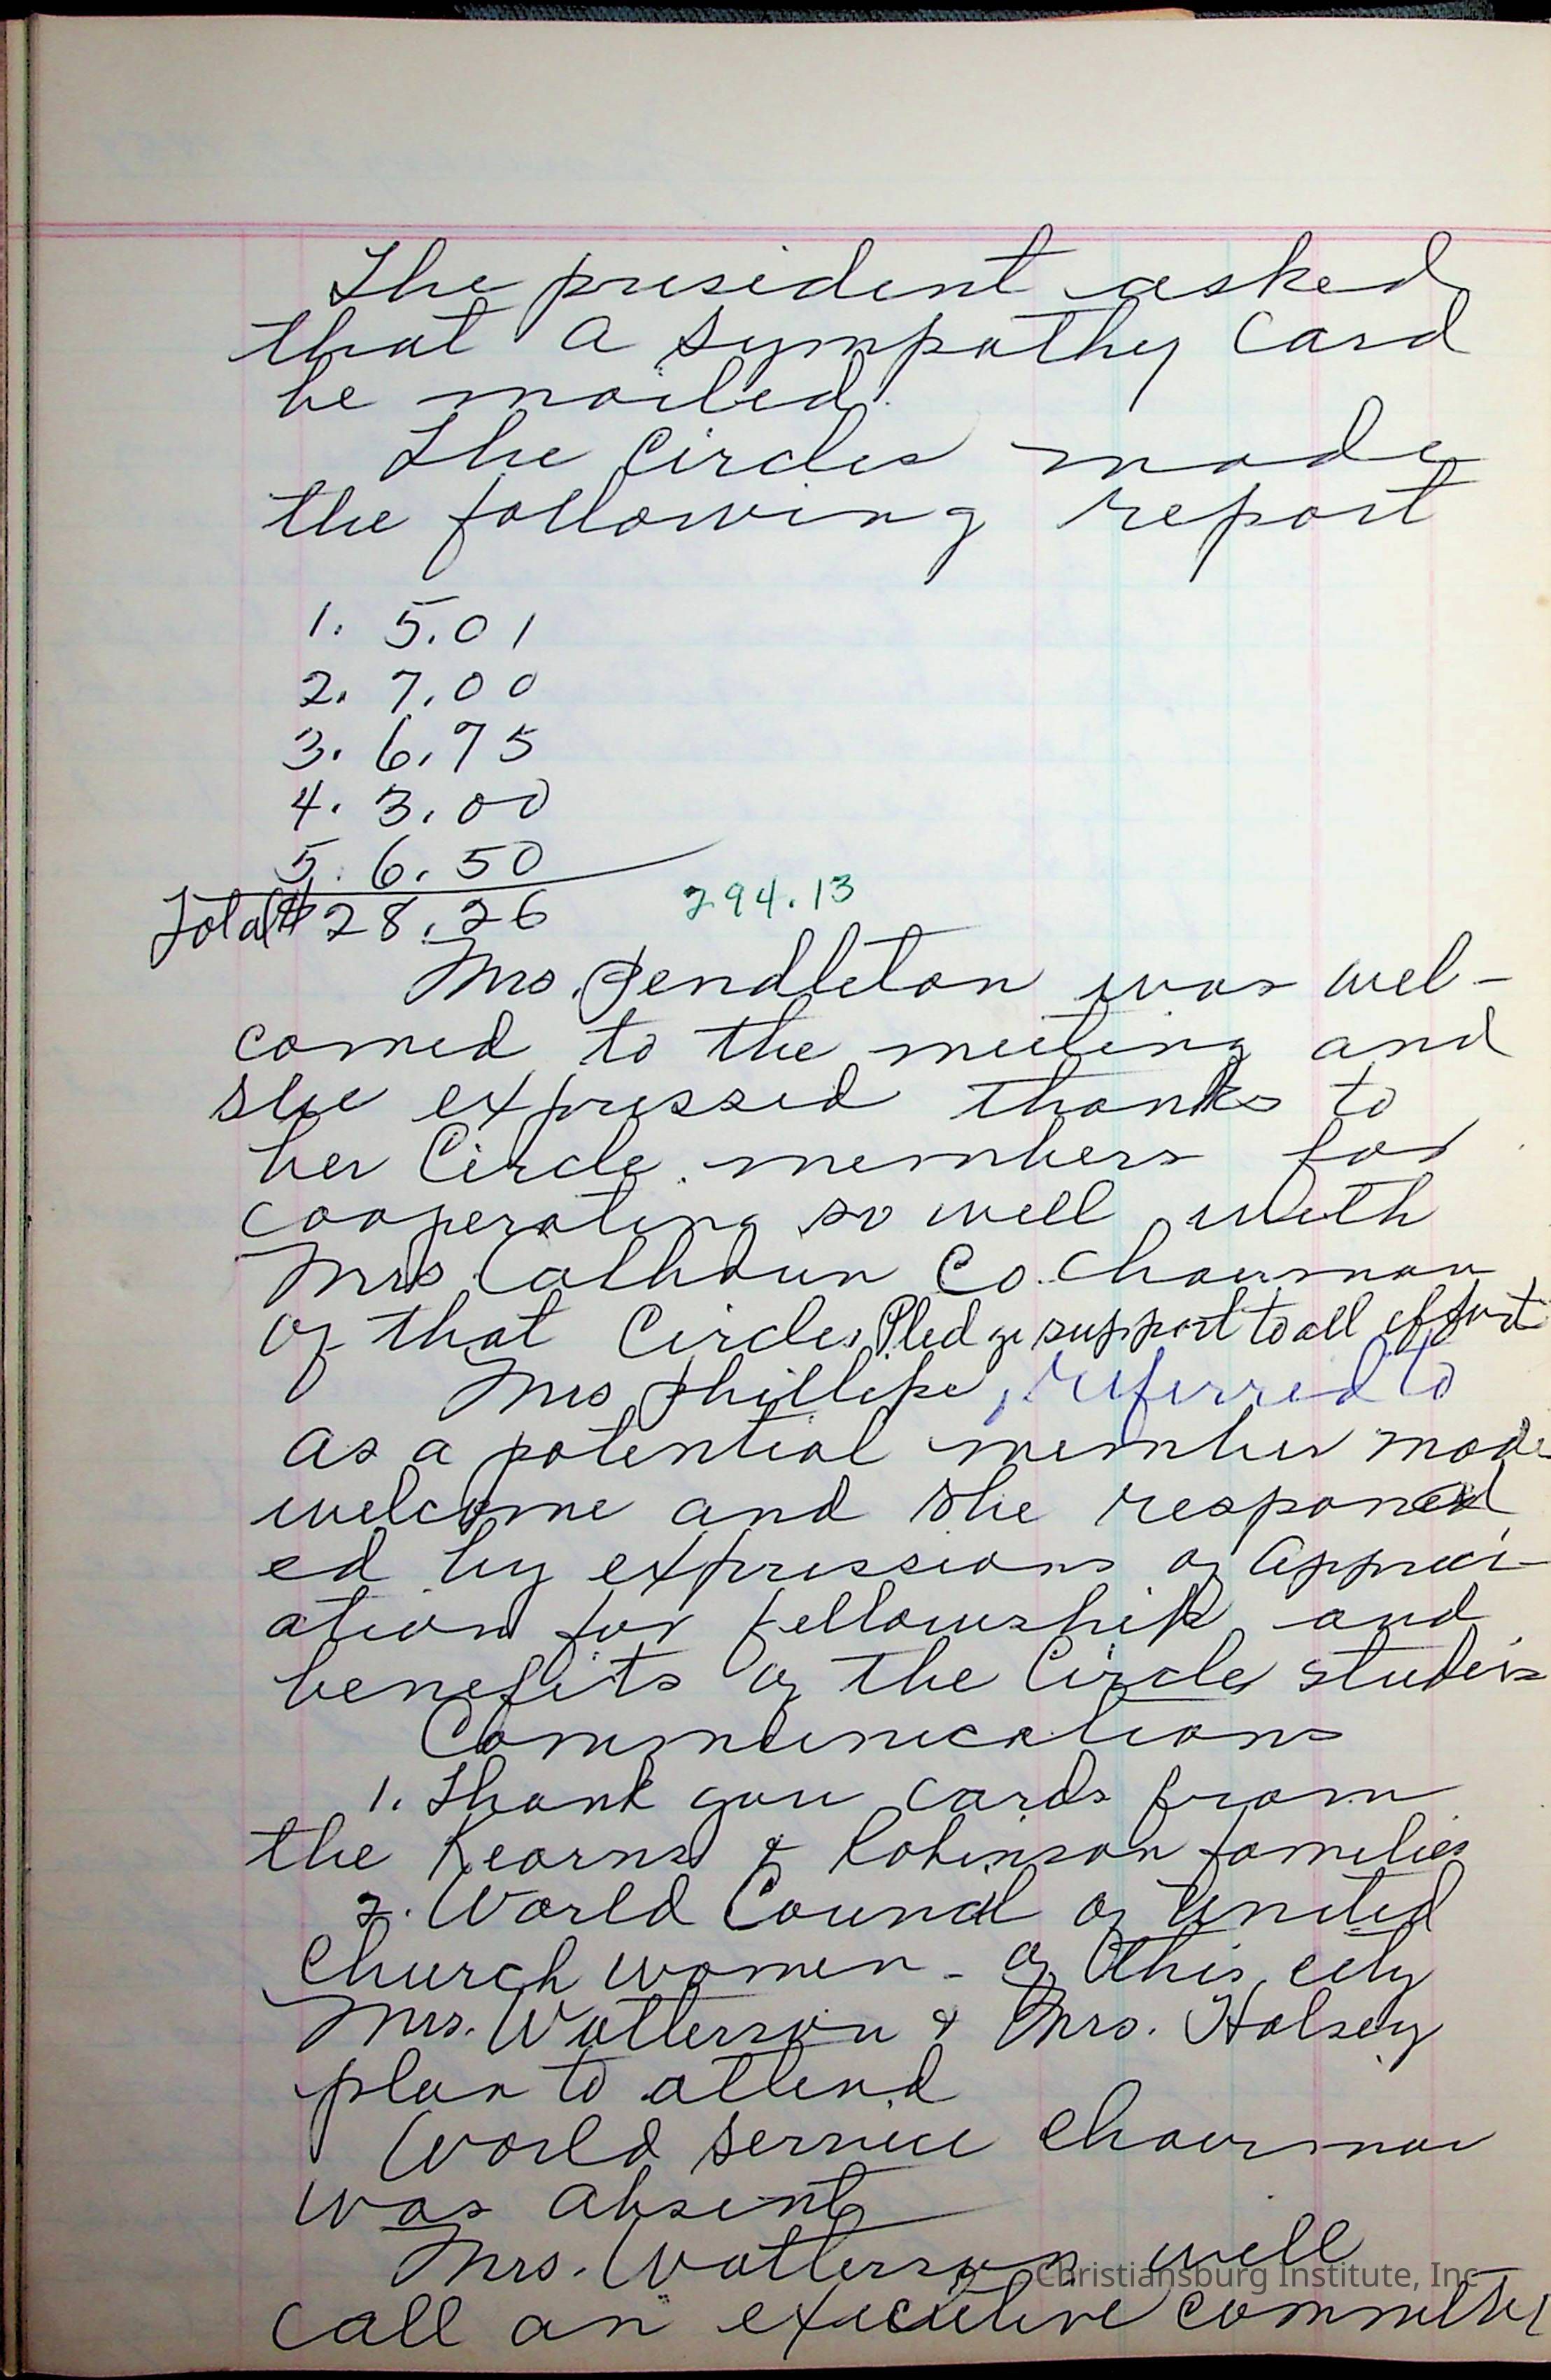 The president asked
that a sympathy card
be mailed.
The Circles made
the following report
1. 5.01
2. 7.00
3. 6.75
4. 3.00
5. 6.50
Total $28.26 294.13
Mrs. Pendleton was wel-
comed to the meeting and
she expressed thanks to
her Circle members for
cooperating so well with
Mrs. Calhoun Co. Chairman
of that Circle. Pledge support to all effort
Mrs Phillips, referred to
as a potential member made
welcome and she respond
ed by expressions of appreci-
ation for fellowship and
benefits of the Circle studies
Communications
1. Thank you cards from
the Kearns & Robinson families
2. World Council of United
Church women - of this city
Mrs. Watterson & Mrs. Halsey
plan to attend
World Service Chairman
was absent
Mrs. Watterson will
call an executive committee
Christiansburg Institute, Inc